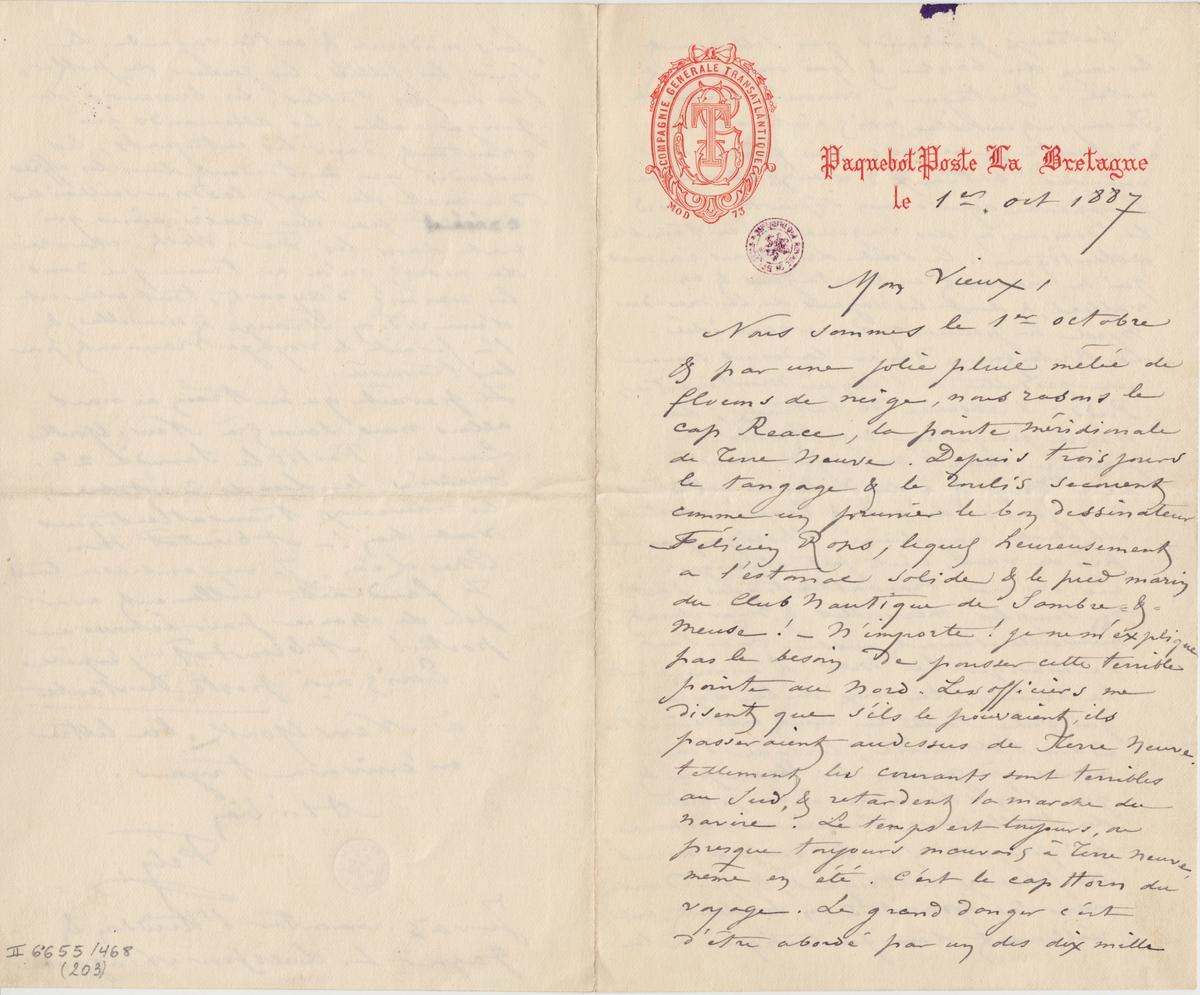 COMPAGNIE GENERALE TRANSATLANTIQUE
MOD 73
Paquebot Poste La Bretagne
le 1er. oct 1887
Mon Vieux!
Nous sommes le 1er octobre
& par une jolie pluie mêlée de
flocons de neige, nous rasons le
cap Reace, la pointe méridionale
de Terre Neuve. Depuis trois jours
le tangage & le roulis secouent
comme un prunier le bon dessinateur
Félicien Rops, lequel heureusement
a l'estomac solide & le pied marin
du Club Nautique de Sambre-&-
Meuse! – N'importe! je ne m'explique
pas le besoin de pousser cette terrible
pointe au Nord. Les officiers me
disent que s'ils le pouvaient, ils
passeraient au dessus de Terre Neuve.
tellement les courants sont terribles
au Sud, & retardent la marche du
navire. Le temps est toujours, ou
presque toujours mauvais à Terre Neuve,
même en été. C'est le cap Horn du
voyage. Le grand danger c'est
d'être abordé par un des dix mille
II 6655/468
(203)